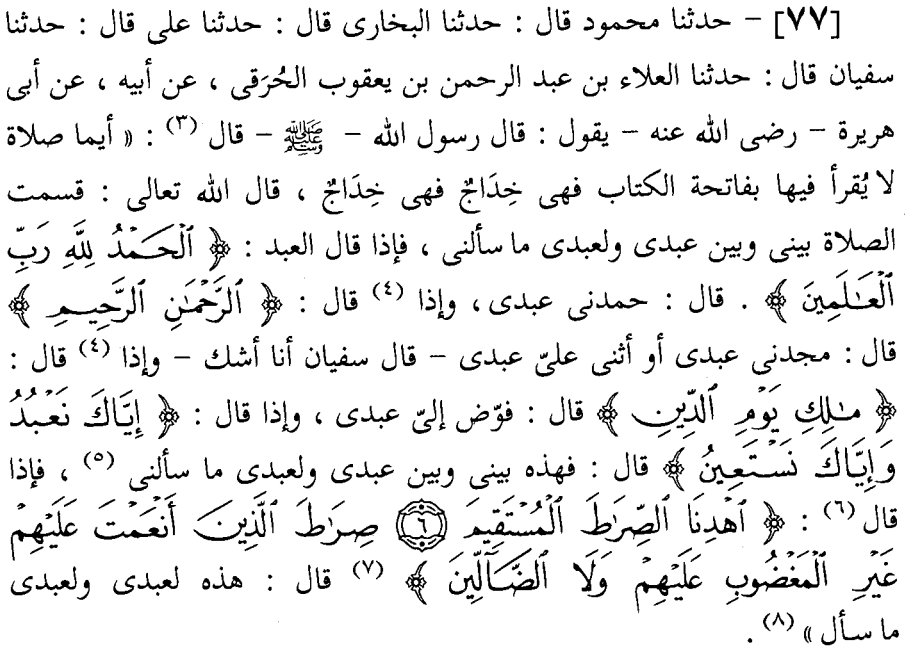 [٧٧] – حدثنا محمود قال : حدثنا البخارى قال : حدثنا على قال : حدثنا
سفيان قال : حدثنا العلاء بن عبد الرحمن بن يعقوب الحُرَقى ، عن أبيه ، عن أبى
هريرة – رضى الله عنه – يقول : قال رسول الله – ﷺ – قال (٣) : « أيما صلاة
لا يُقرأ فيها بفاتحة الكتاب فهى خِدَاجٌ فهى خِدَاجٌ ، قال الله تعالى : قسمت
الصلاة بينى وبين عبدى ولعبدى ما سألنى ، فإذا قال العبد : ﴿ ٱلْحَمْدُ لِلَّهِ رَبِّ
ٱلْعَـٰلَمِينَ ﴾ . قال : حمدنى عبدى ، وإذا (٤) قال : ﴿ ٱلرَّحْمَـٰنِ ٱلرَّحِيمِ ﴾
قال : مجدنى عبدى أو أثنى علىّ عبدى – قال سفيان أنا أشك – وإذا (٤) قال :
﴿ مَـٰلِكِ يَوْمِ ٱلدِّينِ ﴾ قال : فوّض إلىّ عبدى ، وإذا قال : ﴿ إِيَّاكَ نَعْبُدُ
وَإِيَّاكَ نَسْتَعِينُ ﴾ قال : فهذه بينى وبين عبدى ولعبدى ما سألنى (٥) ، فإذا
قال (٦) : ﴿ ٱهْدِنَا ٱلصِّرَٰطَ ٱلْمُسْتَقِيمَ ۝٦ صِرَٰطَ ٱلَّذِينَ أَنْعَمْتَ عَلَيْهِمْ
غَيْرِ ٱلْمَغْضُوبِ عَلَيْهِمْ وَلَا ٱلضَّآلِّينَ ﴾ (٧) قال : هذه لعبدى ولعبدى
ما سأل » (٨) .